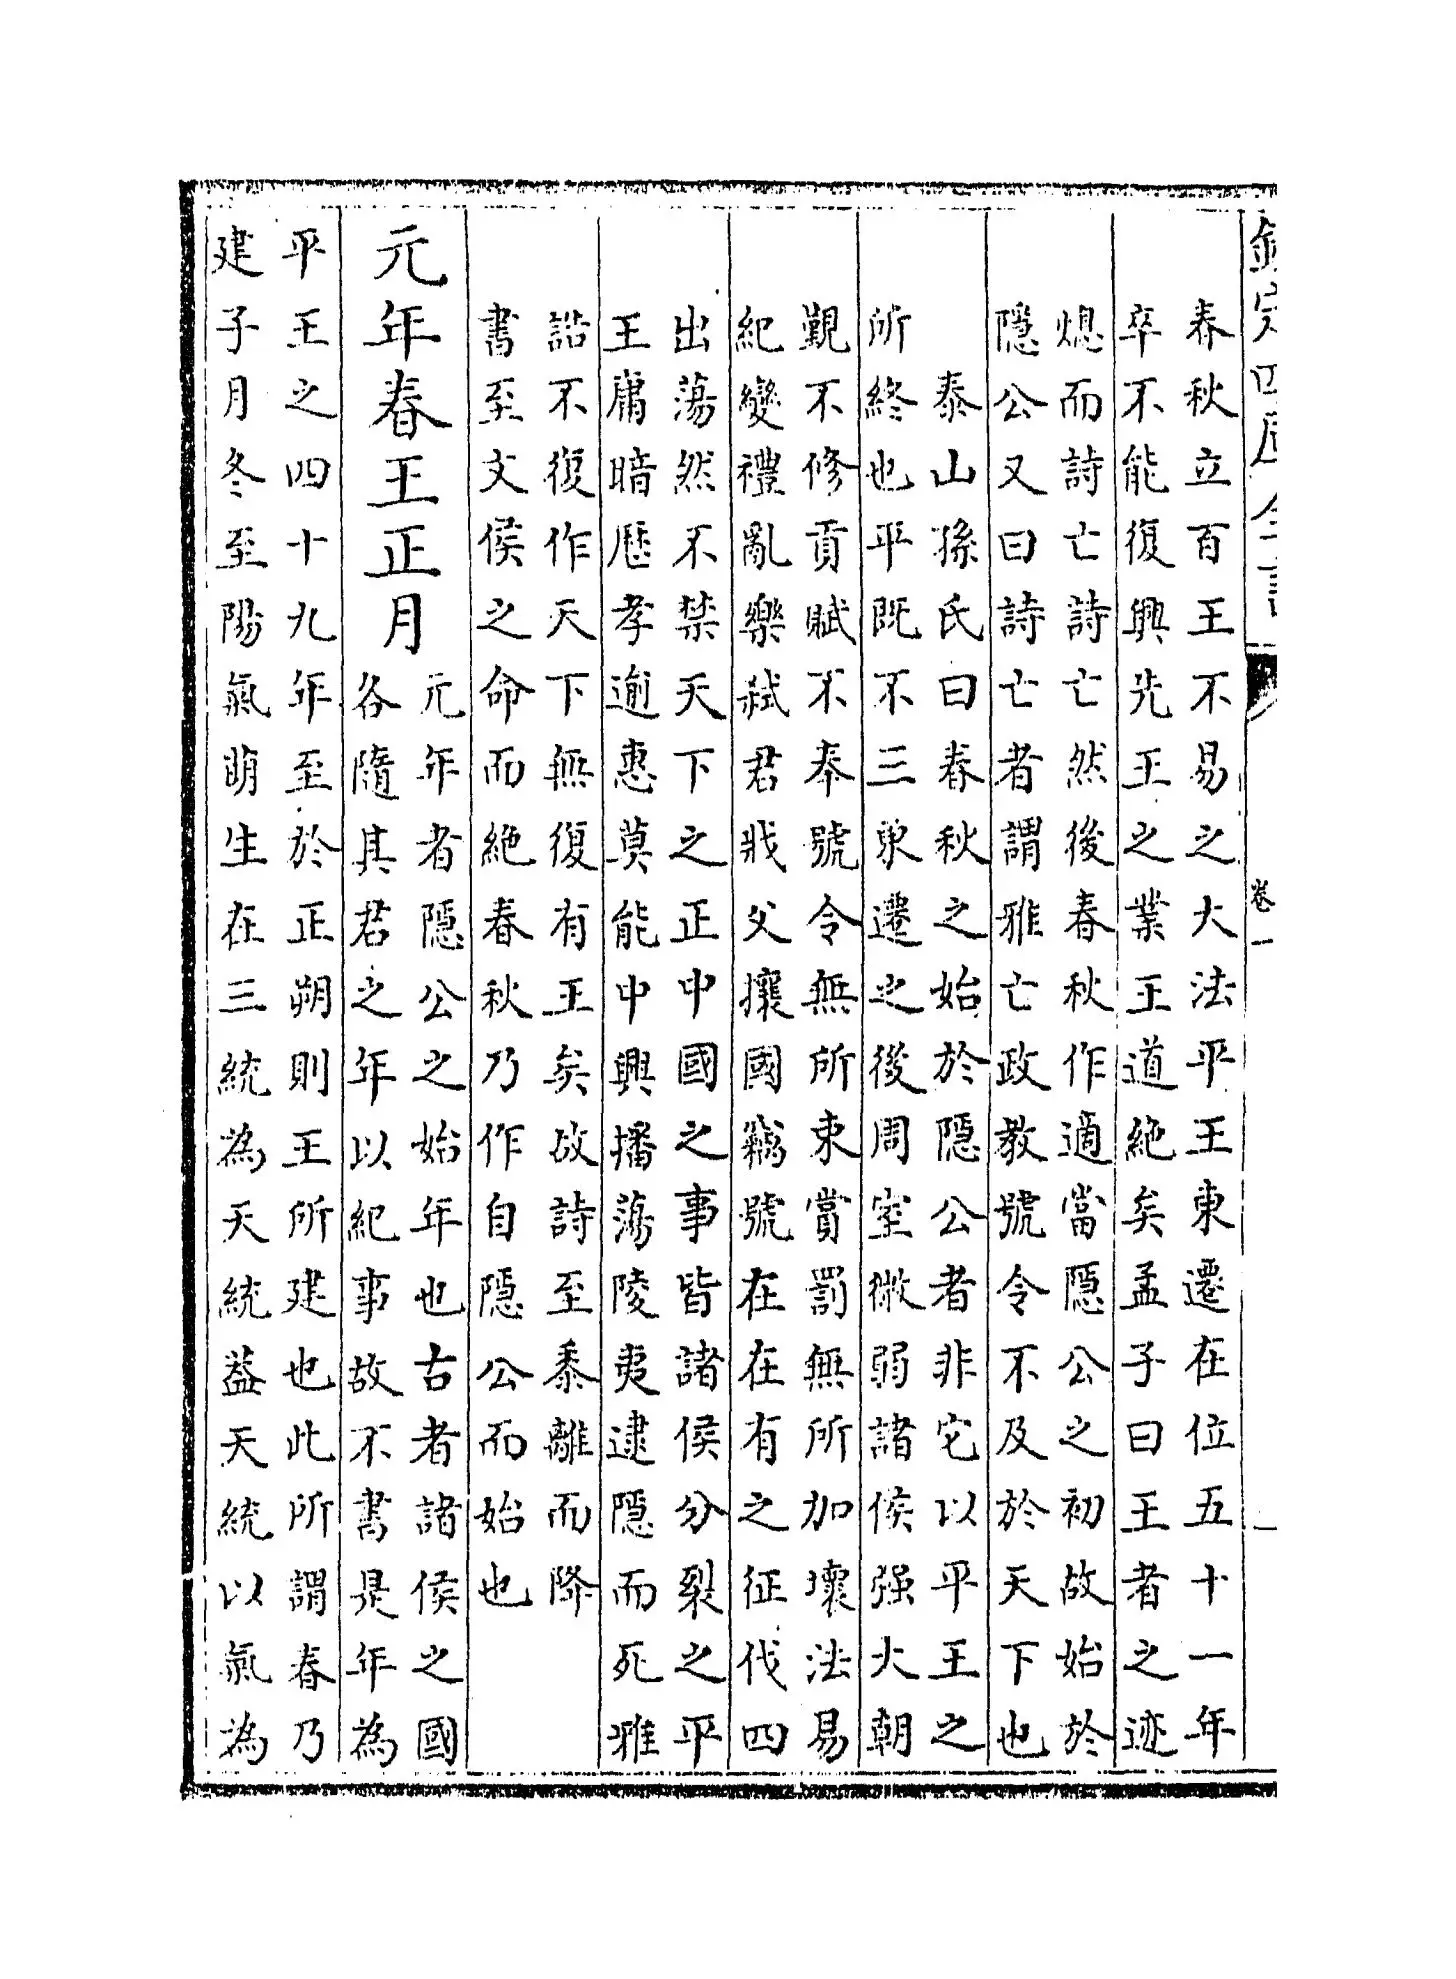 欽定四庫全書
卷一
春秋立百王不易之大法平王東遷在位五十一年
卒不能復興先王之業王道絶矣孟子曰王者之迹
熄而詩亡詩亡然後春秋作適當隱公之初故始於
隱公又曰詩亡者謂雅亡政教號令不及於天下也
泰山孫氏曰春秋之始於隱公者非它以平王之
所終也平既不三東遷之後周室微弱諸侯强大朝
覲不修貢賦不奉號令無所束賞罰無所加壞法易
紀變禮亂樂弑君戕父攘國竊號在在有之征伐四
出蕩然不禁天下之正中國之事皆諸侯分裂之平
王庸暗歴孝逾惠莫能中興播蕩陵夷逮隱而死雅
詒不復作天下無復有王矣故詩至黍離而降
書至文侯之命而絶春秋乃作自隱公而始也
元年春王正月
元年者隱公之始年也古者諸侯之國
各隨其君之年以紀事故不書是年為
平王之四十九年至於正朔則王所建也此所謂春乃
建子月冬至陽氣萌生在三統為天統葢天統以氣為